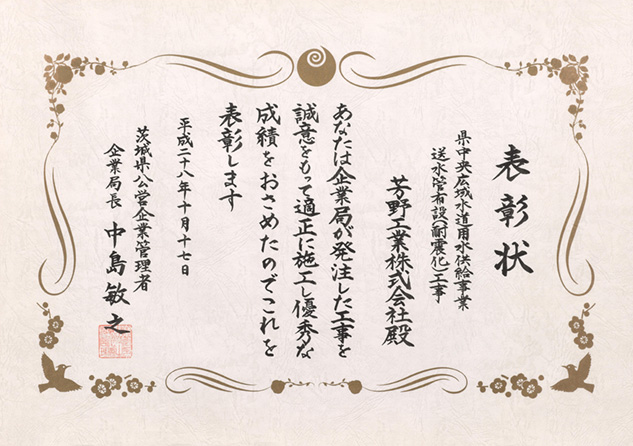 表彰状
県中央広域水道用水供給事業
送水管布設(耐震化)工事
芳野工業株式会社殿
あなたは企業局が発注した工事を
誠意をもって適正に施工し優秀な
成績をおさめたのでこれを
表彰します
平成二十八年十月十七日
茨城県公営企業管理者
企業局長 中島敏之